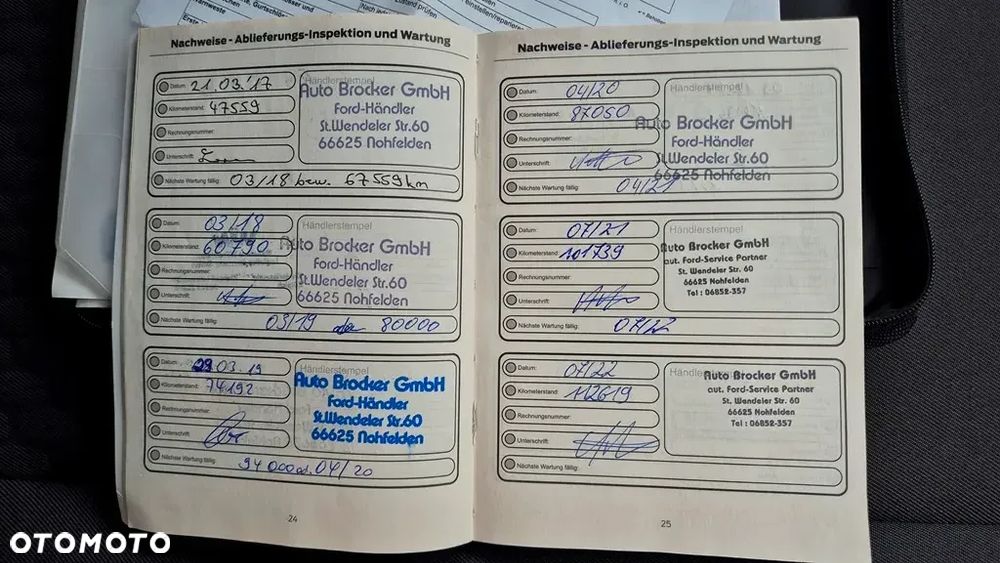 Nachweise - Ablieferungs-Inspektion und Wartung
Datum: 21.03.'17
Kilometerstand: 47559
Rechnungsnummer:
Unterschrift:
Nächste Wartung fällig: 03/18 bzw. 67559km
Händlerstempel
Auto Brocker GmbH
Ford-Händler
St.Wendeler Str.60
66625 Nohfelden
Datum: 03/18
Kilometerstand: 60790
Rechnungsnummer:
Unterschrift:
Nächste Wartung fällig: 03/19 oder 80000
Händlerstempel
Auto Brocker GmbH
Ford-Händler
St.Wendeler Str.60
66625 Nohfelden
Datum: 03.19
Kilometerstand: 74192
Rechnungsnummer:
Unterschrift:
Nächste Wartung fällig: 94 000 od. 04/20
Händlerstempel
Auto Brocker GmbH
Ford-Händler
St.Wendeler Str.60
66625 Nohfelden
24
Nachweise - Ablieferungs-Inspektion und Wartung
Datum: 04/20
Kilometerstand: 87050
Rechnungsnummer:
Unterschrift:
Nächste Wartung fällig: 04/21
Händlerstempel
Auto Brocker GmbH
Ford-Händler
St.Wendeler Str.60
66625 Nohfelden
Datum: 07/21
Kilometerstand: 101739
Rechnungsnummer:
Unterschrift:
Nächste Wartung fällig: 07/22
Händlerstempel
Auto Brocker GmbH
aut. Ford-Service Partner
St. Wendeler Str. 60
66625 Nohfelden
Tel : 06852-357
Datum: 07/22
Kilometerstand: 112619
Rechnungsnummer:
Unterschrift:
Nächste Wartung fällig:
Auto Brocker GmbH
aut. Ford-Service Partner
St. Wendeler Str. 60
66625 Nohfelden
Tel : 06852-357
25
OTOMOTO